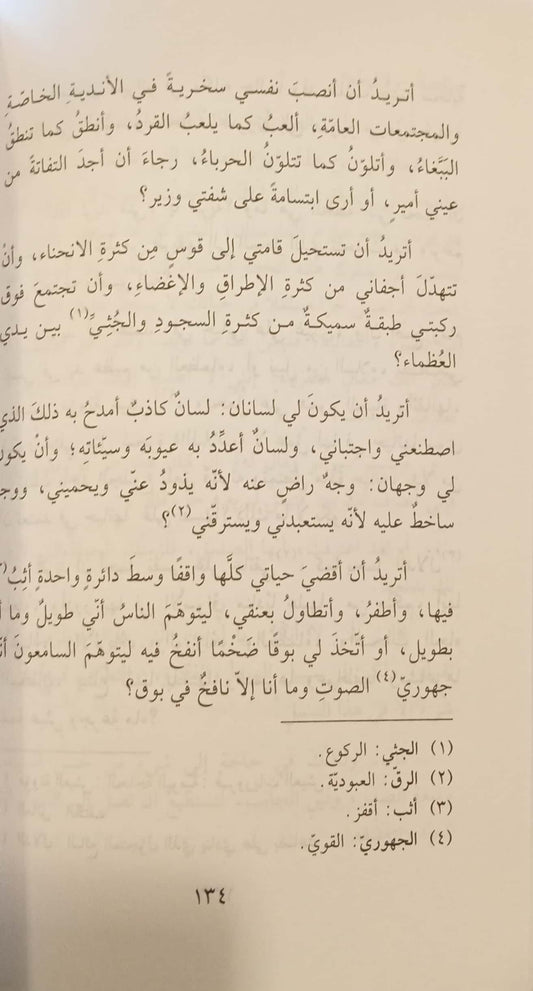 أتريدُ أن أنصبَ نفسي سخريةً في الأنديةِ الخاصّةِ
والمجتمعات العامّةِ، ألعبُ كما يلعبُ القردُ، وأنطقُ كما تنطقُ
الببَّغاءُ، وأتلوّنُ كما تتلوّنُ الحرباءُ، رجاءَ أن أجدَ التفاتةً من
عيني أميرٍ، أو أرى ابتسامةً على شفتي وزير؟
أتريدُ أن تستحيلَ قامتي إلى قوسٍ مِن كثرةِ الانحناء، وأنْ
تتهدّلَ أجفاني من كثرةِ الإطراقِ والإغضاءِ، وأن تجتمعَ فوق
ركبتي طبقةٌ سميكةٌ من كثرةِ السجودِ والجُثِيِّ(١) بين يدي
العُظماء؟
أتريدُ أن يكونَ لي لسانان: لسانٌ كاذبٌ أمدحُ به ذلكَ الذي
اصطنعني واجتباني، ولسانٌ أعدِّدُ به عيوبَه وسيّئاتِه؛ وأنْ يكون
لي وجهان: وجهٌ راضٍ عنه لأنّه يذودُ عنّي ويحميني،
ساخطٌ عليه لأنّه يستعبدني ويسترقّني(٢)؟
أتريدُ أن أقضيَ حياتي كلَّها واقفًا وسطَ دائرةٍ واحدةٍ أثِبُ
فيها، وأطفرُ، وأتطاولُ بعنقي، ليتوهّمَ الناسُ أنّي طويلٌ وما
بطويل، أو أتّخذَ لي بوقًا ضَخْمًا أنفخُ فيه ليتوهّمَ السامعونَ
جهوريّ(٤) الصوتِ وما أنا إلاّ نافخٌ في بوق؟
(١) الجثي: الركوع.
(٢) الرقّ: العبوديّة.
(٣) أثب: أقفز.
(٤) الجهوريّ: القويّ.
١٣٤